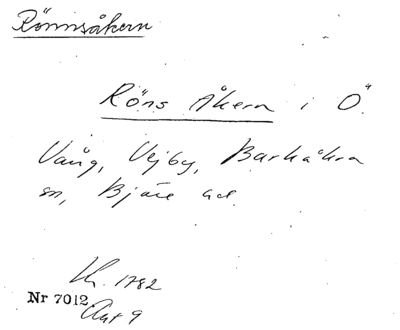 Rönnsåkern
Röns Åkern i Ö.
Vång, Vejby, Barkåkra
sn, Bjäre hd.
Lk. 1782
Nr 7012
Akt 9